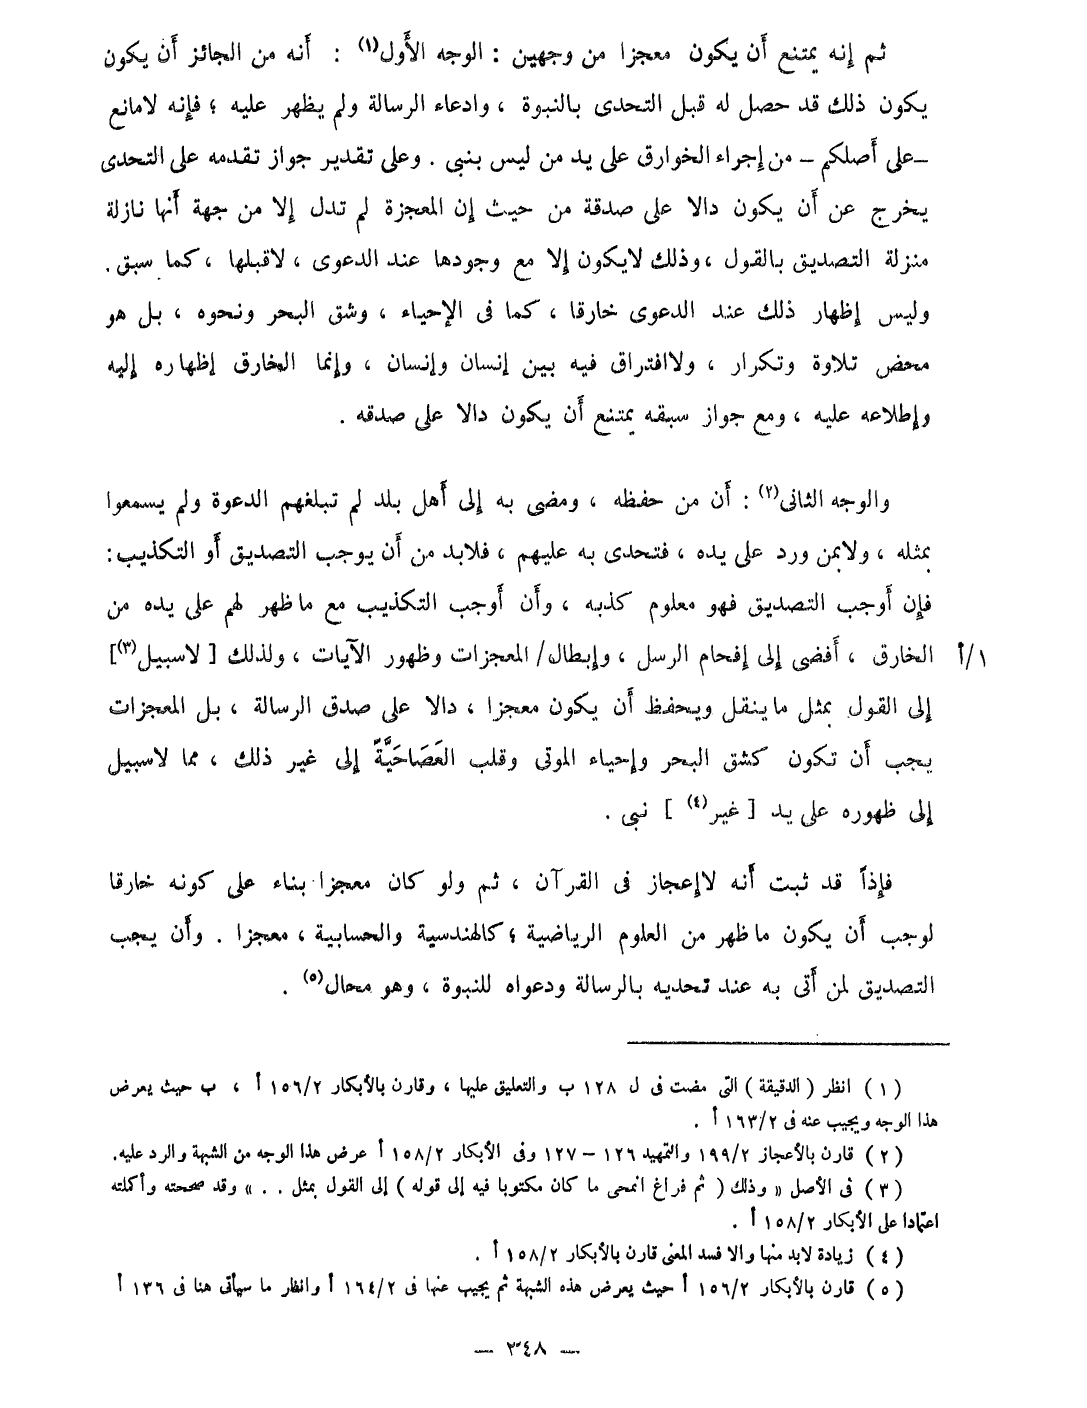 ثم إنه يمتنع أن يكون معجزا من وجهين : الوجه الأول(١) : أنه من الجائز أن يكون
يكون ذلك قد حصل له قبل التحدى بالنبوة ، وادعاء الرسالة ولم يظهر عليه ؛ فإنه لامانع
–على أصلكم – من إجراء الخوارق على يد من ليس بنبى . وعلى تقدير جواز تقدمه على التحدى
يخرج عن أن يكون دالا على صدقة من حيث إن المعجزة لم تدل إلا من جهة أنها نازلة
منزلة التصديق بالقول ، وذلك لايكون إلا مع وجودها عند الدعوى ، لاقبلها ، كما سبق .
وليس إظهار ذلك عند الدعوى خارقا ، كما فى الإحياء ، وشق البحر ونحوه ، بل هو
محض تلاوة وتكرار ، ولاافتراق فيه بين إنسان وإنسان ، وإنما الخارق إظهاره إليه
وإطلاعه عليه ، ومع جواز سبقه يمتنع أن يكون دالا على صدقه .
والوجه الثانى(٢) : أن من حفظه ، ومضى به إلى أهل بلد لم تبلغهم الدعوة ولم يسمعوا
بمثله ، ولابمن ورد على يده ، فتحدى به عليهم ، فلابد من أن يوجب التصديق أو التكذيب :
فإن أوجب التصديق فهو معلوم كذبه ، وأن أوجب التكذيب مع ماظهر لهم على يده من
١/أ الخارق ، أفضى إلى إفحام الرسل ، وإبطال/ المعجزات وظهور الآيات ، ولذلك [ لاسبيل(٣)]
إلى القول بمثل ماينقل ويحفظ أن يكون معجزا ، دالا على صدق الرسالة ، بل المعجزات
يجب أن تكون كشق البحر وإحياء الموتى وقلب العَصَاحَيَّةً إلى غير ذلك ، مما لاسبيل
إلى ظهوره على يد [ غير(٤) ] نبى .
فإذاً قد ثبت أنه لاإعجاز فى القرآن ، ثم ولو كان معجزا بناء على كونه خارقا
لوجب أن يكون ماظهر من العلوم الرياضية ؛ كالهندسية والحسابية ، معجزا . وأن يجب
التصديق لمن أتى به عند تحديه بالرسالة ودعواه للنبوة ، وهو محال(٥) .
( ١ ) انظر ( الدقيقة ) التى مضت فى ل ١٢٨ ب والتعليق عليها ، وقارن بالأبكار ١٥٦/٢ أ ، ب حيث يعرض
هذا الوجه ويجيب عنه فى ١٦٣/٢ أ .
( ٢ ) قارن بالأعجاز ١٩٩/٢ والتمهيد ١٢٦ – ١٢٧ وفى الأبكار ١٥٨/٢ أ عرض هذا الوجه من الشبهة والرد عليه.
( ٣ ) فى الأصل « وذلك ( ثم فراغ انمحى ما كان مكتوبا فيه إلى قوله ) إلى القول بمثل . . » وقد صححته وأكملته
اعتمادا على الأبكار ١٥٨/٢ أ .
( ٤ ) زيادة لابد منها والا فسد المعنى قارن بالأبكار ١٥٨/٢ أ .
( ٥ ) قارن بالأبكار ١٥٦/٢ أ حيث يعرض هذه الشبهة ثم يجيب عنها فى ١٦٤/٢ أ وانظر ما سيأتى هنا فى ١٣٦ أ
— ٣٤٨ —